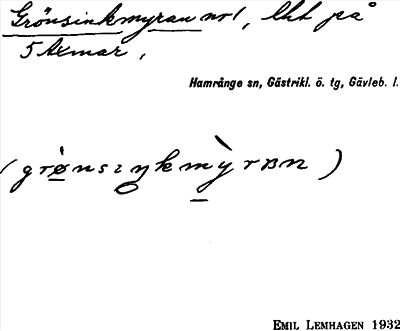 Grönsinkmyran nr 1, lht på
5 Axmar,
Hamrånge sn, Gästrikl. ö. tg, Gävleb. l.
(grø̀nsıŋkmỳrʙn)
EMIL LEMHAGEN 1932